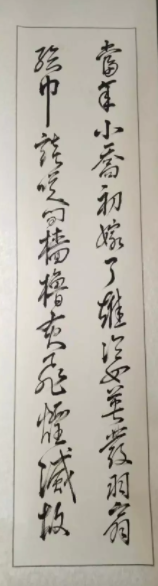 當年小喬初嫁了雄姿英發羽扇
綸巾談笑間檣櫓灰飛煙滅故